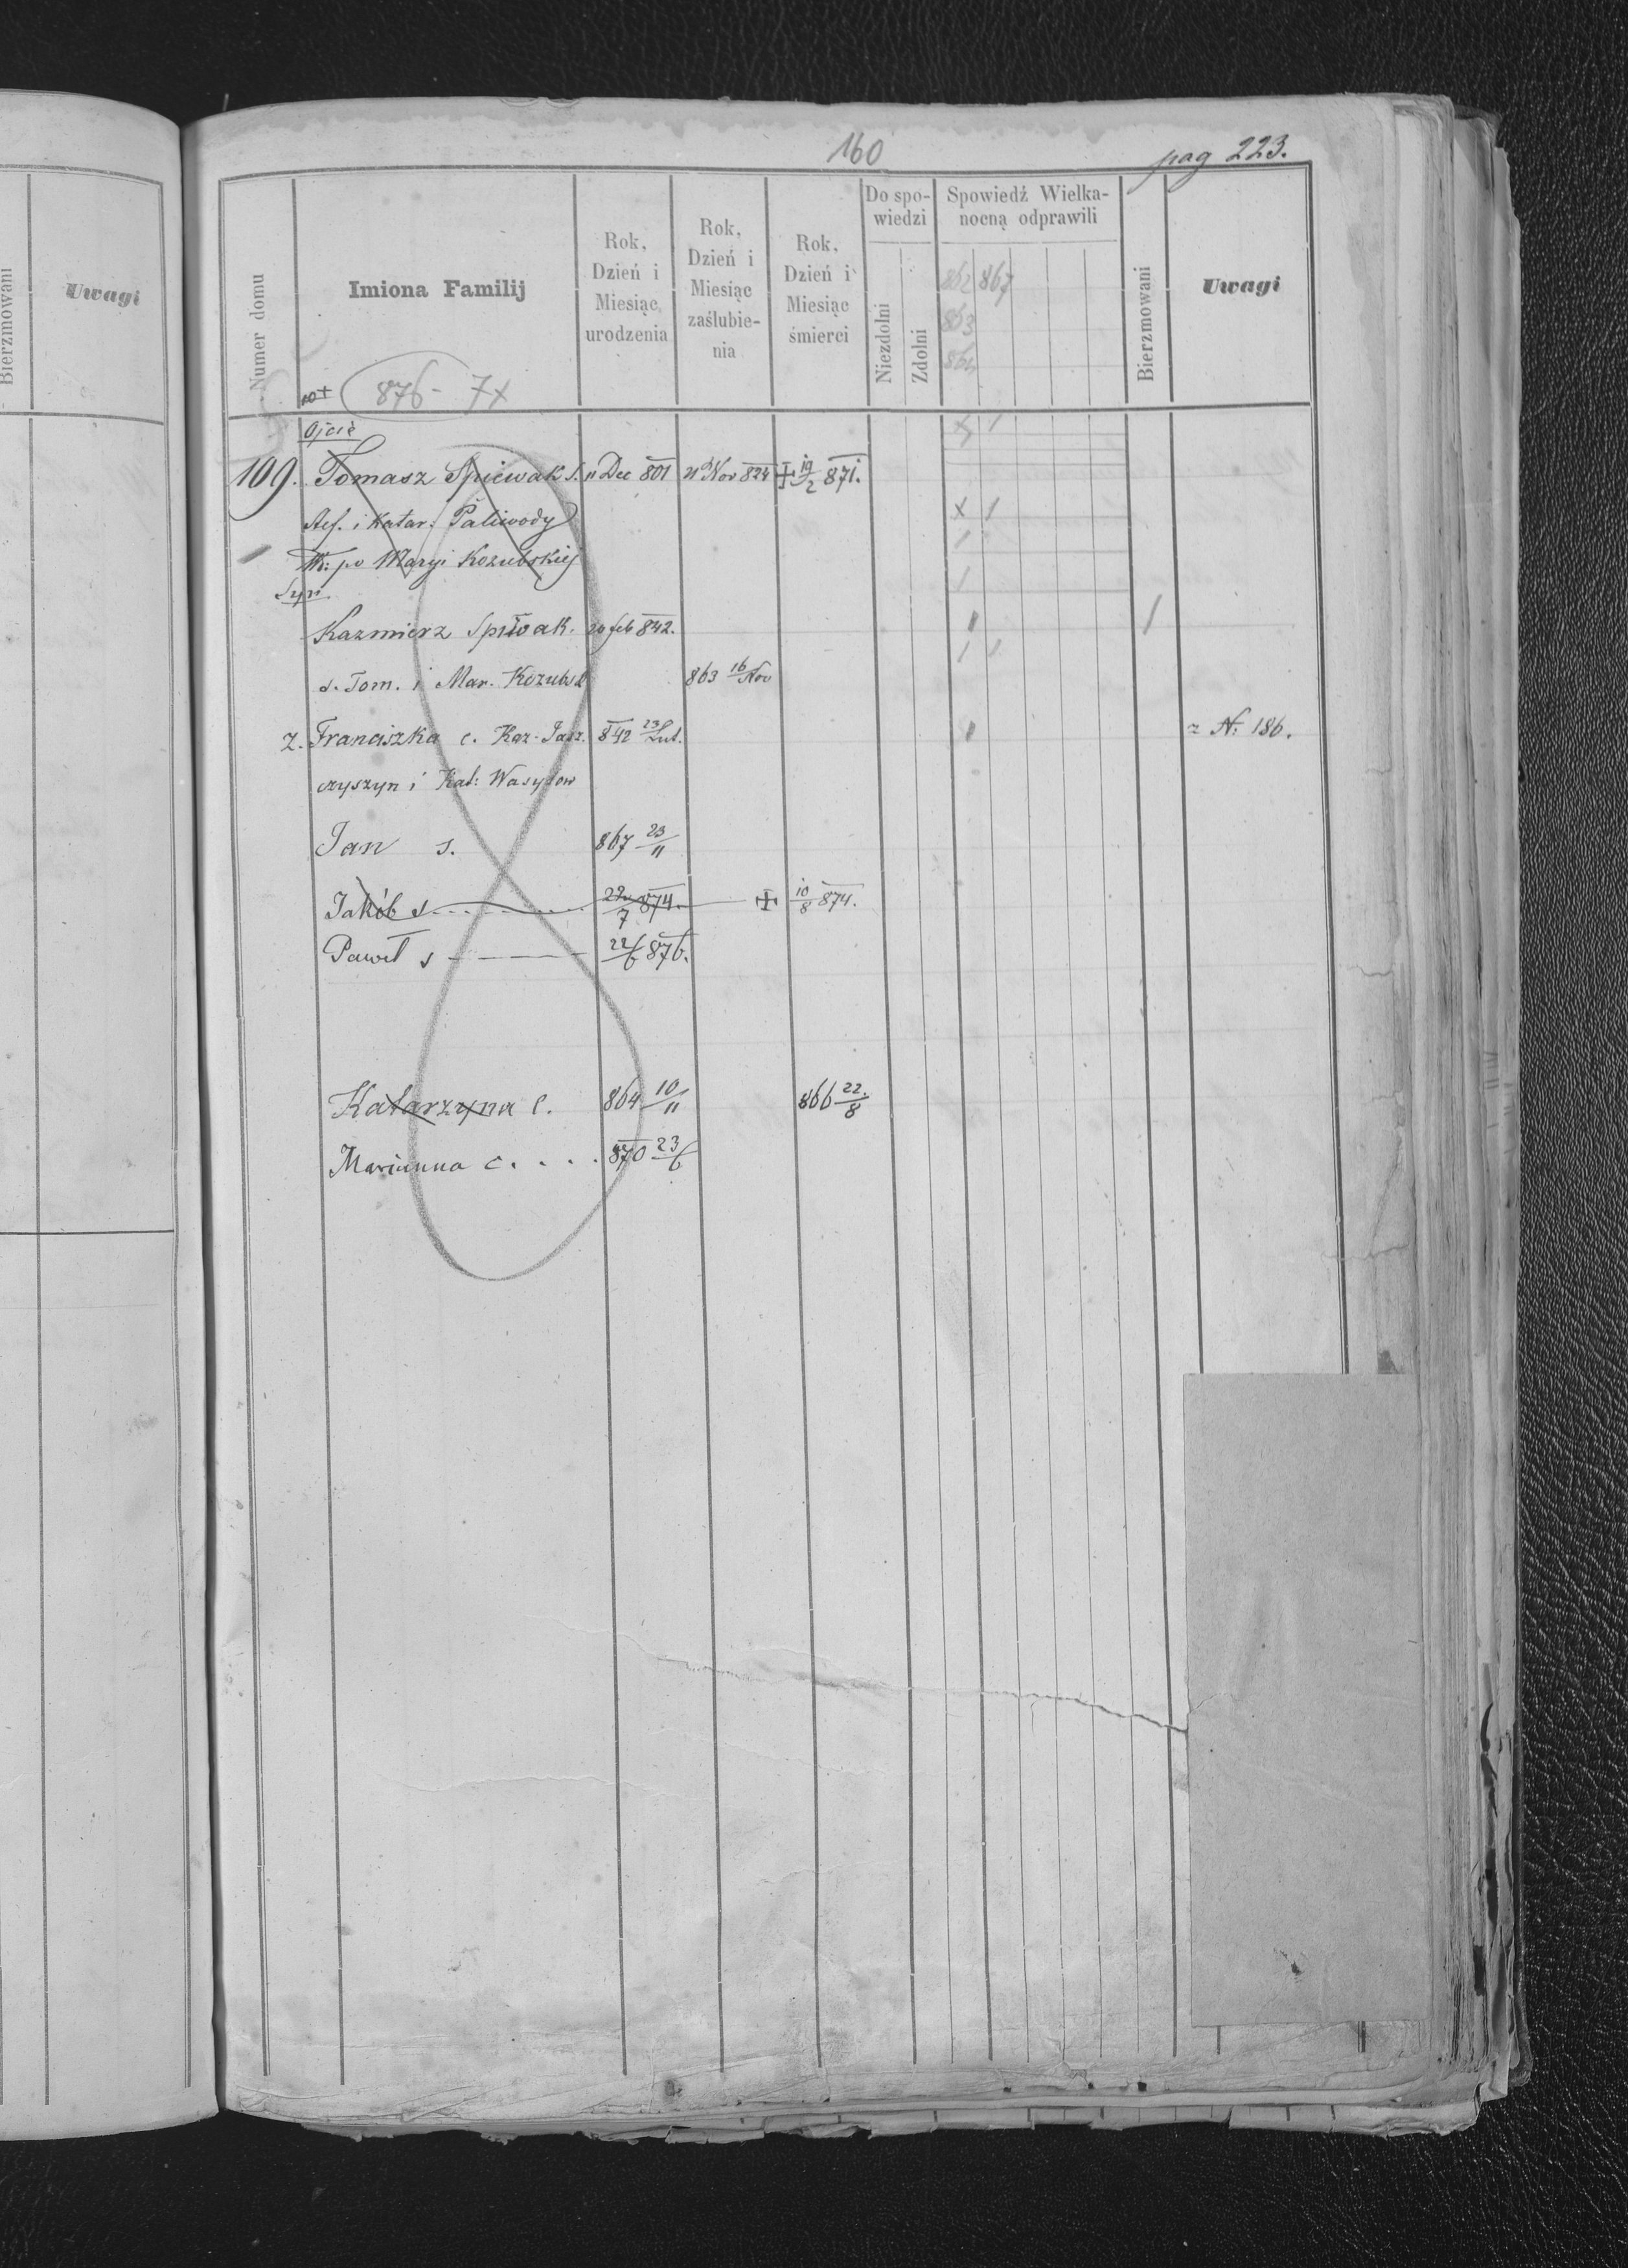 160 pag 223.
Bierzmowani Uwagi
Numer domu
Imiona Familij
Rok, Dzień i Miesiąc, urodzenia
Rok, Dzień i Miesiąc zaślubie- nia
Rok, Dzień i Miesiąc śmierci
Do spo- wiedzi
Niezdolni Zdolni
Spowiedź Wielka- nocną odprawili
862 867
863
864
Bierzmowani
Uwagi
10+ 876 - 7x
Ojciec
109. Tomasz Spiewak s. 11 Dec 801 21 Nov 824 19/2 871.
i Katar. Paliwody
W: po Maryi Kozubskiej
Syn
Kazmierz Spiwak. 20 feb 842.
s. Tom. i Mar. Kozubsk 863 16/Nov
ż. Franciszka c. Kaz. Jasz. 842 23/Lut. z N: 186.
czyszyn i Kat: Wasylow
Jan s. 867 23/11
Jakób s 22/7 874. 10/8 874.
Paweł s 22/6 876.
Katarzyna c. 864 10/11 866 22/8
Marianna c. . . . 870 23/6